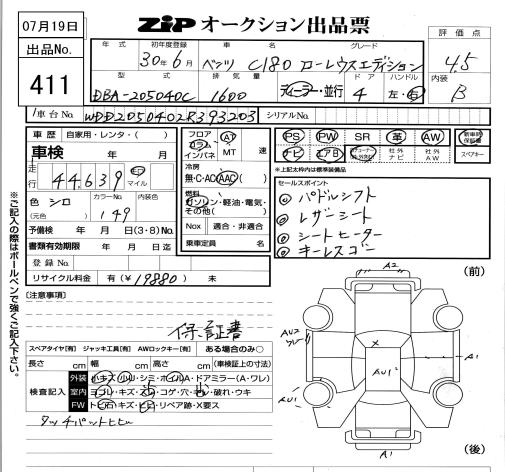 07月19日
ZIP オークション出品票
出品No.
411
年式 初年度登録 車名 グレード
30年6月 ベンツ C180 ローレウスエディション
評価点
4.5
内装
B
型式 排気量 ドア ハンドル
DBA-205040C 1600 ディーラー・並行 4 左・右
車台No. WDD2050402R393203 シリアルNo.
車歴 自家用・レンタ・( )
車検
走行 44,639 km マイル
色 シロ カラーNo. 149 内装色
(元色)
予備検 年 月 日(3・8)No.
書類有効期限 年 月 日迄
登録No.
リサイクル料金 有(¥ 19880 ) 未
フロア コラム インパネ AT MT 速
冷房
無・C・AC(AAC)
燃料
ガソリン・軽油・電気・その他( )
Nox 適合・非適合
乗車定員 名
PS PW SR 革 AW 新車時保証書
ナビ エアB 社外ナビ 社外AW スペアキー
※上記太枠内は標準装備品
セールスポイント
① パドルシフト
② レザーシート
③ シートヒーター
④ キーレスゴー
※ご記入の際はボールペンで強くご記入下さい。
[注意事項]
保証書
スペアタイヤ[有] ジャッキ工具[有] AWロックキー[有] ある場合のみ○
長さ cm 幅 cm 高さ cm (車検証上の寸法)
検査記入
外装 小キズ・小凹・シミ・ホイルA・ドアミラー(A・ワレ)
室内 ヨゴレ・キズ・スレ・コゲ・穴・ハガレ・破れ・ウキ
FW トビ石・キズ・ヒビ・リペア跡・X要ス
タッチパットヒビ
(前)
A2
AU2
X
A1
AU1
AU1
A1
(後)